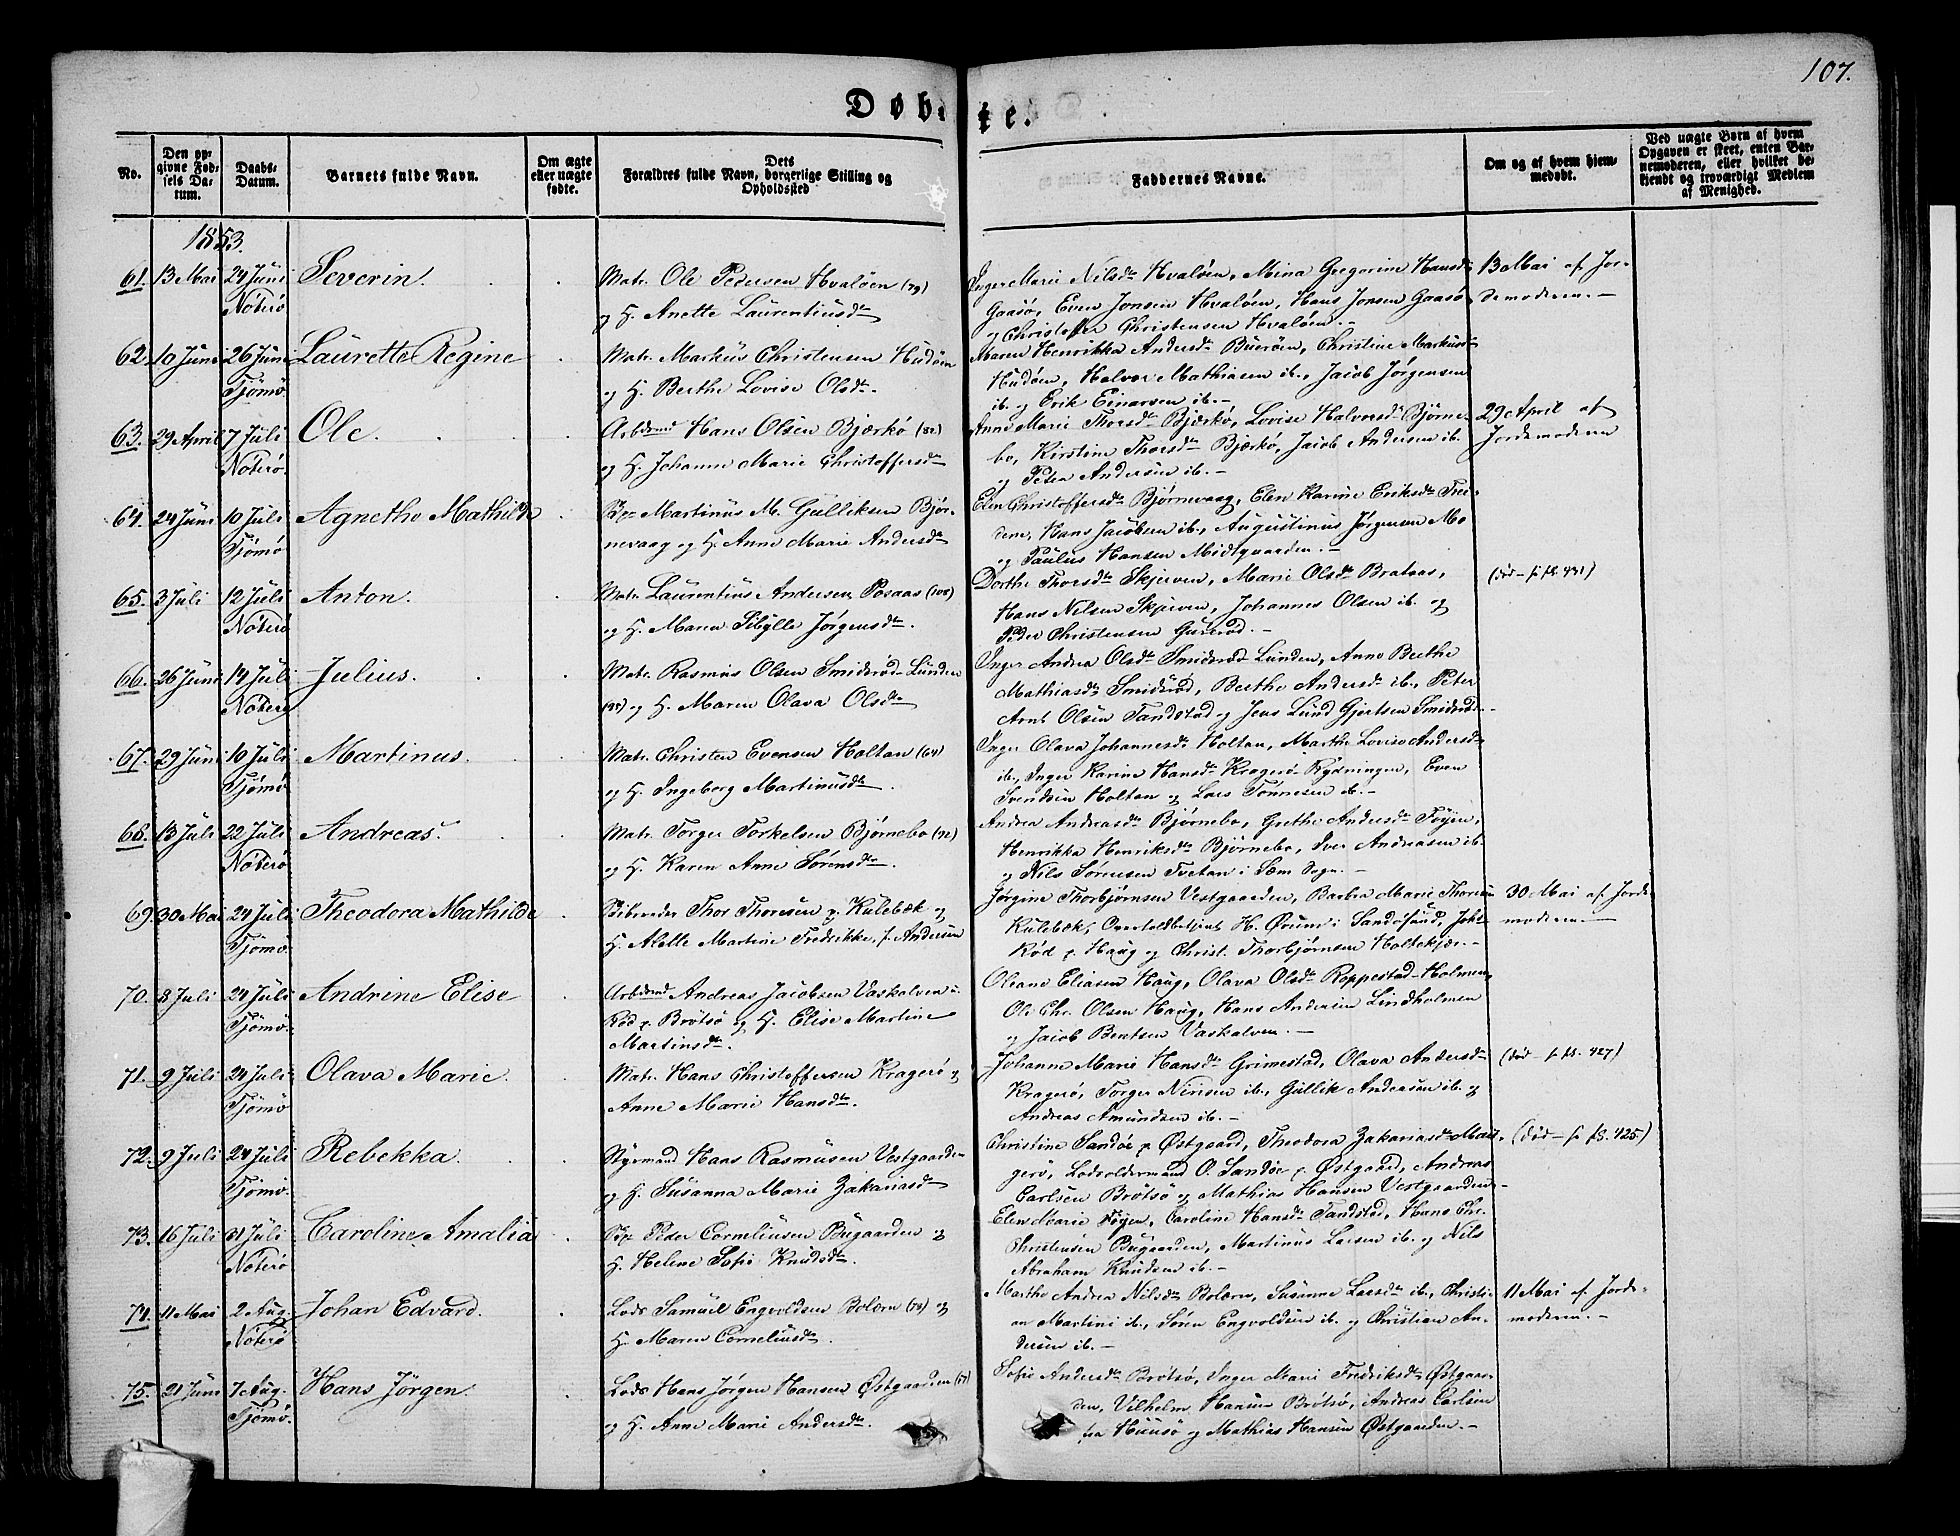 107.
Døbte.
No.
Den opgivne Fødsels Datum.
Daabs-Datum.
Barnets fulde Navn.
Om ægte eller uægte fødte.
Dets Forældres fulde Navn, borgerlige Stilling og Opholdssted
Faddernes Navne.
Om og af hvem hjemmedøbt.
Ved uægte Børn af hvem Opgaven er skeet, enten Barnemoderen, eller hvilket bekjendt og troværdigt Medlem af Menighed.
1853.
61. 13 Mai 24 Juni Nøterø Severin.
Matr. Ole Pedersen Hvaløen (79)
og H. Anette Laurentiusdtr
Inger Marie Nilsdtr Hvaløen, Mina Gregorine Hansdtr
Gaasø, Even Jonsen Hvaløen, Hans Jonsen Gaasø
og Christoffer Christensen Hvaløen.-
13 Mai af Jor-
demoderen.-
62. 10 Juni 26 Juni Tjømø Laurette Regine
Matr. Markus Christensen Hudøen
og H. Berthe Lovise Olsdtr.
Maren Henrikka Andersdtr Buerøen, Christine Markusdtr
Hudøen, Halvor Mathiasen ib., Jacob Jørgensen
ib. og Erik Einarsen ib.-
63. 29 April 7 Juli Nøterø Ole.
Arbdsmd Hans Olsen Bjærkø (82)
og H. Johanne Marie Christoffersdtr
Anne Marie Thorsdtr Bjærkø, Lovise Halvorsdtr Bjørne-
bo, Kirstine Thorsdtr Bjærkø, Jacob Andersen ib.
og Peter Andersen ib.-
29 April af
Jordemoderen
64. 24 Juni 10 Juli Tjømø Agnethe Mathilde
Martinus M. Gulliksen Bjør-
nevaag og H. Anne Marie Andersdtr
Elen Christoffersdtr Bjørnevaag, Elen Karine Eriksdtr Tre-
dem, Hans Jacobsen ib., Augustinus Jørgensen Mo
og Paulus Hansen Midtgaarden.-
65. 3 Juli 12 Juli Nøterø Anton.
Matr. Laurentius Andersen Posaas (108)
og H. Maren Sibylle Jørgensdtr.
Dorthe Thorsdtr Skjerven, Marie Olsdtr Brataas,
Hans Nilsen Skjerven, Johannes Olsen ib. og
Peder Christensen Guserød.-
(død - fl. 431)
66. 26 Juni 14 Juli Nøterø Julius.
Matr. Rasmus Olsen Smidsrød-Lunden
og H. Maren Olava Olsdtr
Inger Andrea Olsdtr Smidsrød-Lunden, Anne Berthe
Mathiasdtr Smidsrød, Berthe Andersdtr ib., Peter
Arnt Olsen Tandstad og Jens Lund Gjertsen Smidsrød.-
67. 29 Juni 10 Juli Tjømø Martinus.
Matr. Christen Evensen Holtan (64)
og H. Ingeborg Martinusdtr.
Inger Olava Johannesdtr Holtan, Marthe Lovise Andersdtr
ib., Inger Karine Hansdtr Kragerø-Rydningen, Even
Svendsen Holtan og Lars Tønnesen ib.-
68. 13 Juli 22 Juli Nøterø Andreas.
Matr. Torger Torkelsen Bjørnebo (92)
og H. Karen Anne Sørensdtr.
Andrea Andreasdtr Bjørnebo, Grethe Andersdtr Føyen,
Henrikka Henriksdtr Bjørnebo, Iver Andreasen ib.
og Nils Sørensen Tvetan i Sæm Sogn.-
69. 30 Mai 24 Juli Tjømø Theodora Mathilde
Thor Thoresen p. Kulebæk og
H. Alette Martine Fredrikke, f. Andersen
Jørgine Thorbjørnsen Vestgaarden, Barbra Marie Thoresen
Kulebæk, Overtoldbetjent H. Ørum i Sandøsund, Joh.
Rød p. Haug og Christ. Thorbjørnsen Holtekjær.-
30 Mai af Jorde-
moderen.-
70. 8 Juli 24 Juli Tjømø Andrine Elise
Arbdsmd Andreas Jacobsen Vaskalven u.
Rød p. Brøtsø og H. Elise Martine
Martinsdtr.
Oleane Eliasen Haug, Olava Olsdtr Roppestad-Holmen,
Ole Chr. Olsen Haug, Hans Andersen Lindholmen
og Jacob Bentsen Vaskalven.-
71. 9 Juli 24 Juli Tjømø Olava Marie.
Matr. Hans Christoffersen Kragerø og
Anne Marie Hansdtr.
Johanne Marie Hansdtr Grimestad, Olava Andersdtr
Kragerø, Torger Nirisen ib., Gullik Andersen ib. og
Andreas Amundsen ib.-
(død - fl. 427)
72. 9 Juli 24 Juli Tjømø. Rebekka.
Styrmand Hans Rasmusen Vestgaarden
og H. Susanna Marie Zakariasdtr
Christine Sandøe p. Østgaard, Theodora Zakariasdtr Mar-
gerø, Lodsoldermand O. Sandøe p. Østgaard, Andreas
Carlsen Brøtsø og Mathias Hansen Vestgaarden.-
(død - fl. 425.)
73. 16 Juli 31 Juli Nøterø Caroline Amalia
Peder Corneliusen Bugaarden og
H. Helene Sofie Knudsdtr.
Elen Marie Føyen, Caroline Hansdtr Tandstad, Hans Chr.
Christensen Bugaarden, Martinus Larsen ib. og Nils
Abraham Knudsen ib.-
74. 11 Mai 2 Aug. Nøterø Johan Edvard.
Lods Samuel Engvoldsen Bolærn (78) og
H. Maren Corneliusdtr.
Marthe Andrea Nilsdtr Bolærn, Susanne Larsdtr ib., Christi-
an Martini ib., Søren Engvoldsen ib. og Christian An-
dersen ib.-
11 Mai af Jorde-
moderen.-
75. 21 Juni 7 Aug. Tjømø. Hans Jørgen.
Lods Hans Jørgen Hansen Østgaarden
og H. Anne Marie Andersdtr.
Sofie Andersdtr Brøtsø, Inger Marie Fredriksdtr Østgaar-
den, Vilhelm Hansen Brøtsø, Andreas Carlsen
fra Huusø og Mathias Hansen Østgaarden.-